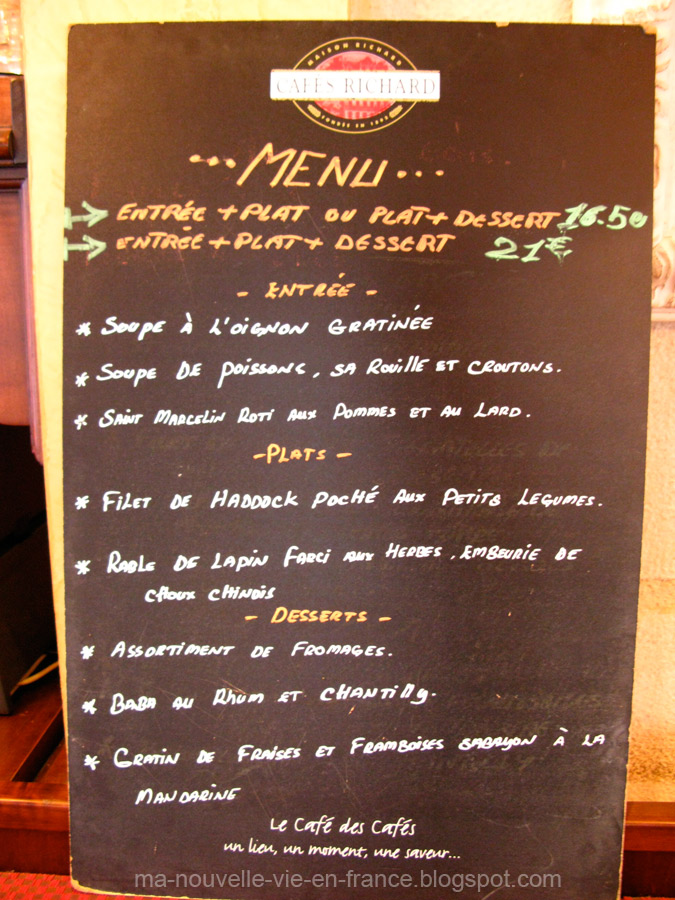 MAISON RICHARD
CAFÉS RICHARD
FONDÉE EN 1892
... MENU ...
→ ENTRÉE + PLAT OU PLAT + DESSERT 16.50
→ ENTRÉE + PLAT + DESSERT 21€
- ENTRÉE -
* SOUPE À L'OIGNON GRATINÉE
* SOUPE DE POISSONS, SA ROUILLE ET CROUTONS.
* SAINT MARCELIN ROTI AUX POMMES ET AU LARD.
- PLATS -
* FILET DE HADDOCK POCHÉ AUX PETITS LEGUMES.
* RABLE DE LAPIN FARCI AUX HERBES, EMBEURIE DE
CHOUX CHINOIS
- DESSERTS -
* ASSORTIMENT DE FROMAGES.
* BABA AU RHUM ET CHANTILLY.
* GRATIN DE FRAISES ET FRAMBOISES SABAYON À LA
MANDARINE
Le Café des Cafés
un lieu, un moment, une saveur...
ma-nouvelle-vie-en-france.blogspot.com